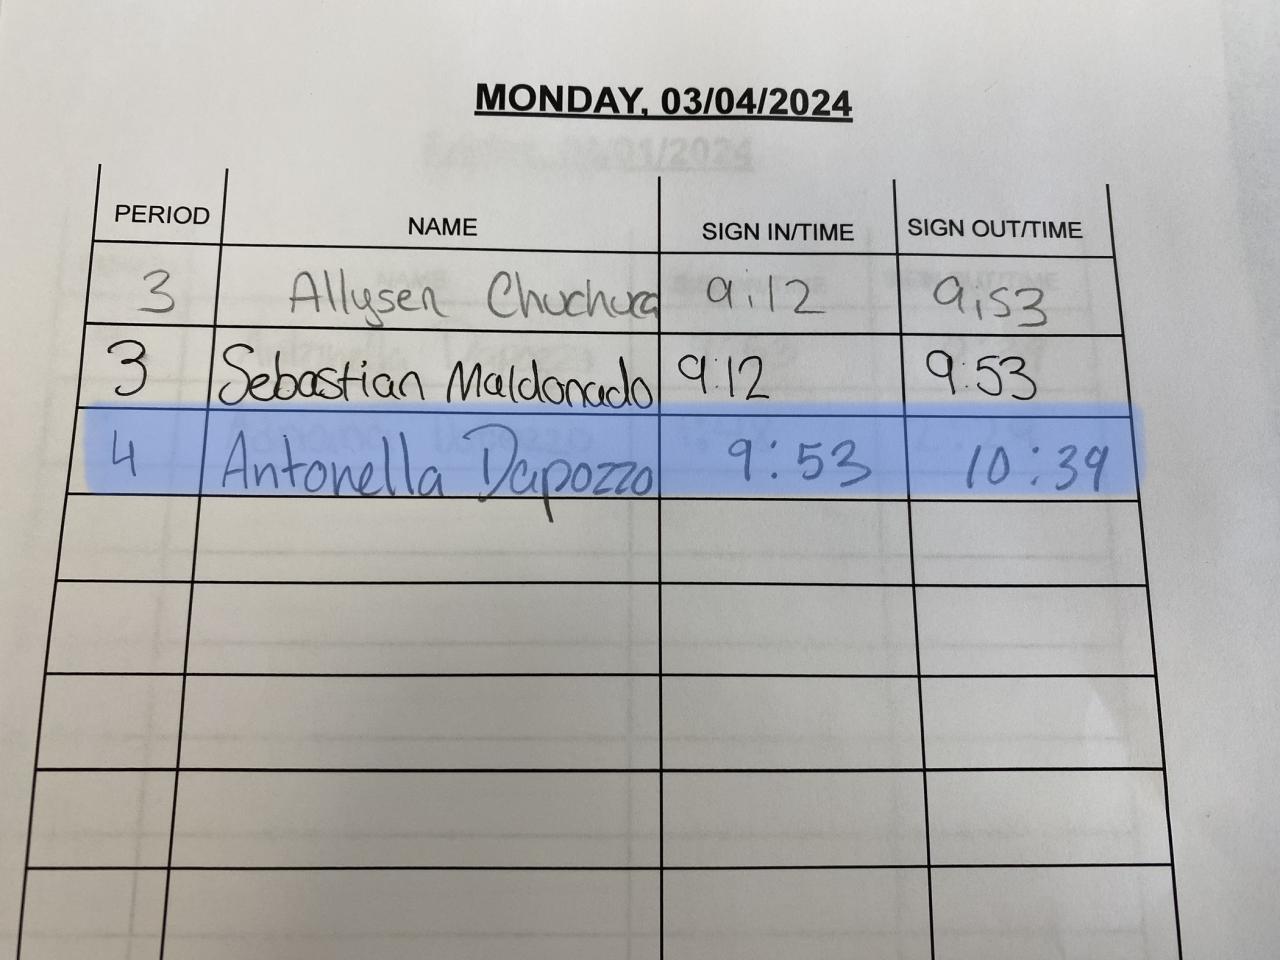 MONDAY, 03/04/2024
PERIOD NAME SIGN IN/TIME SIGN OUT/TIME
3 Allysen Chuchuca 9:12 9:53
3 Sebastian Maldonado 9:12 9:53
4 Antonella Dapozzo 9:53 10:39